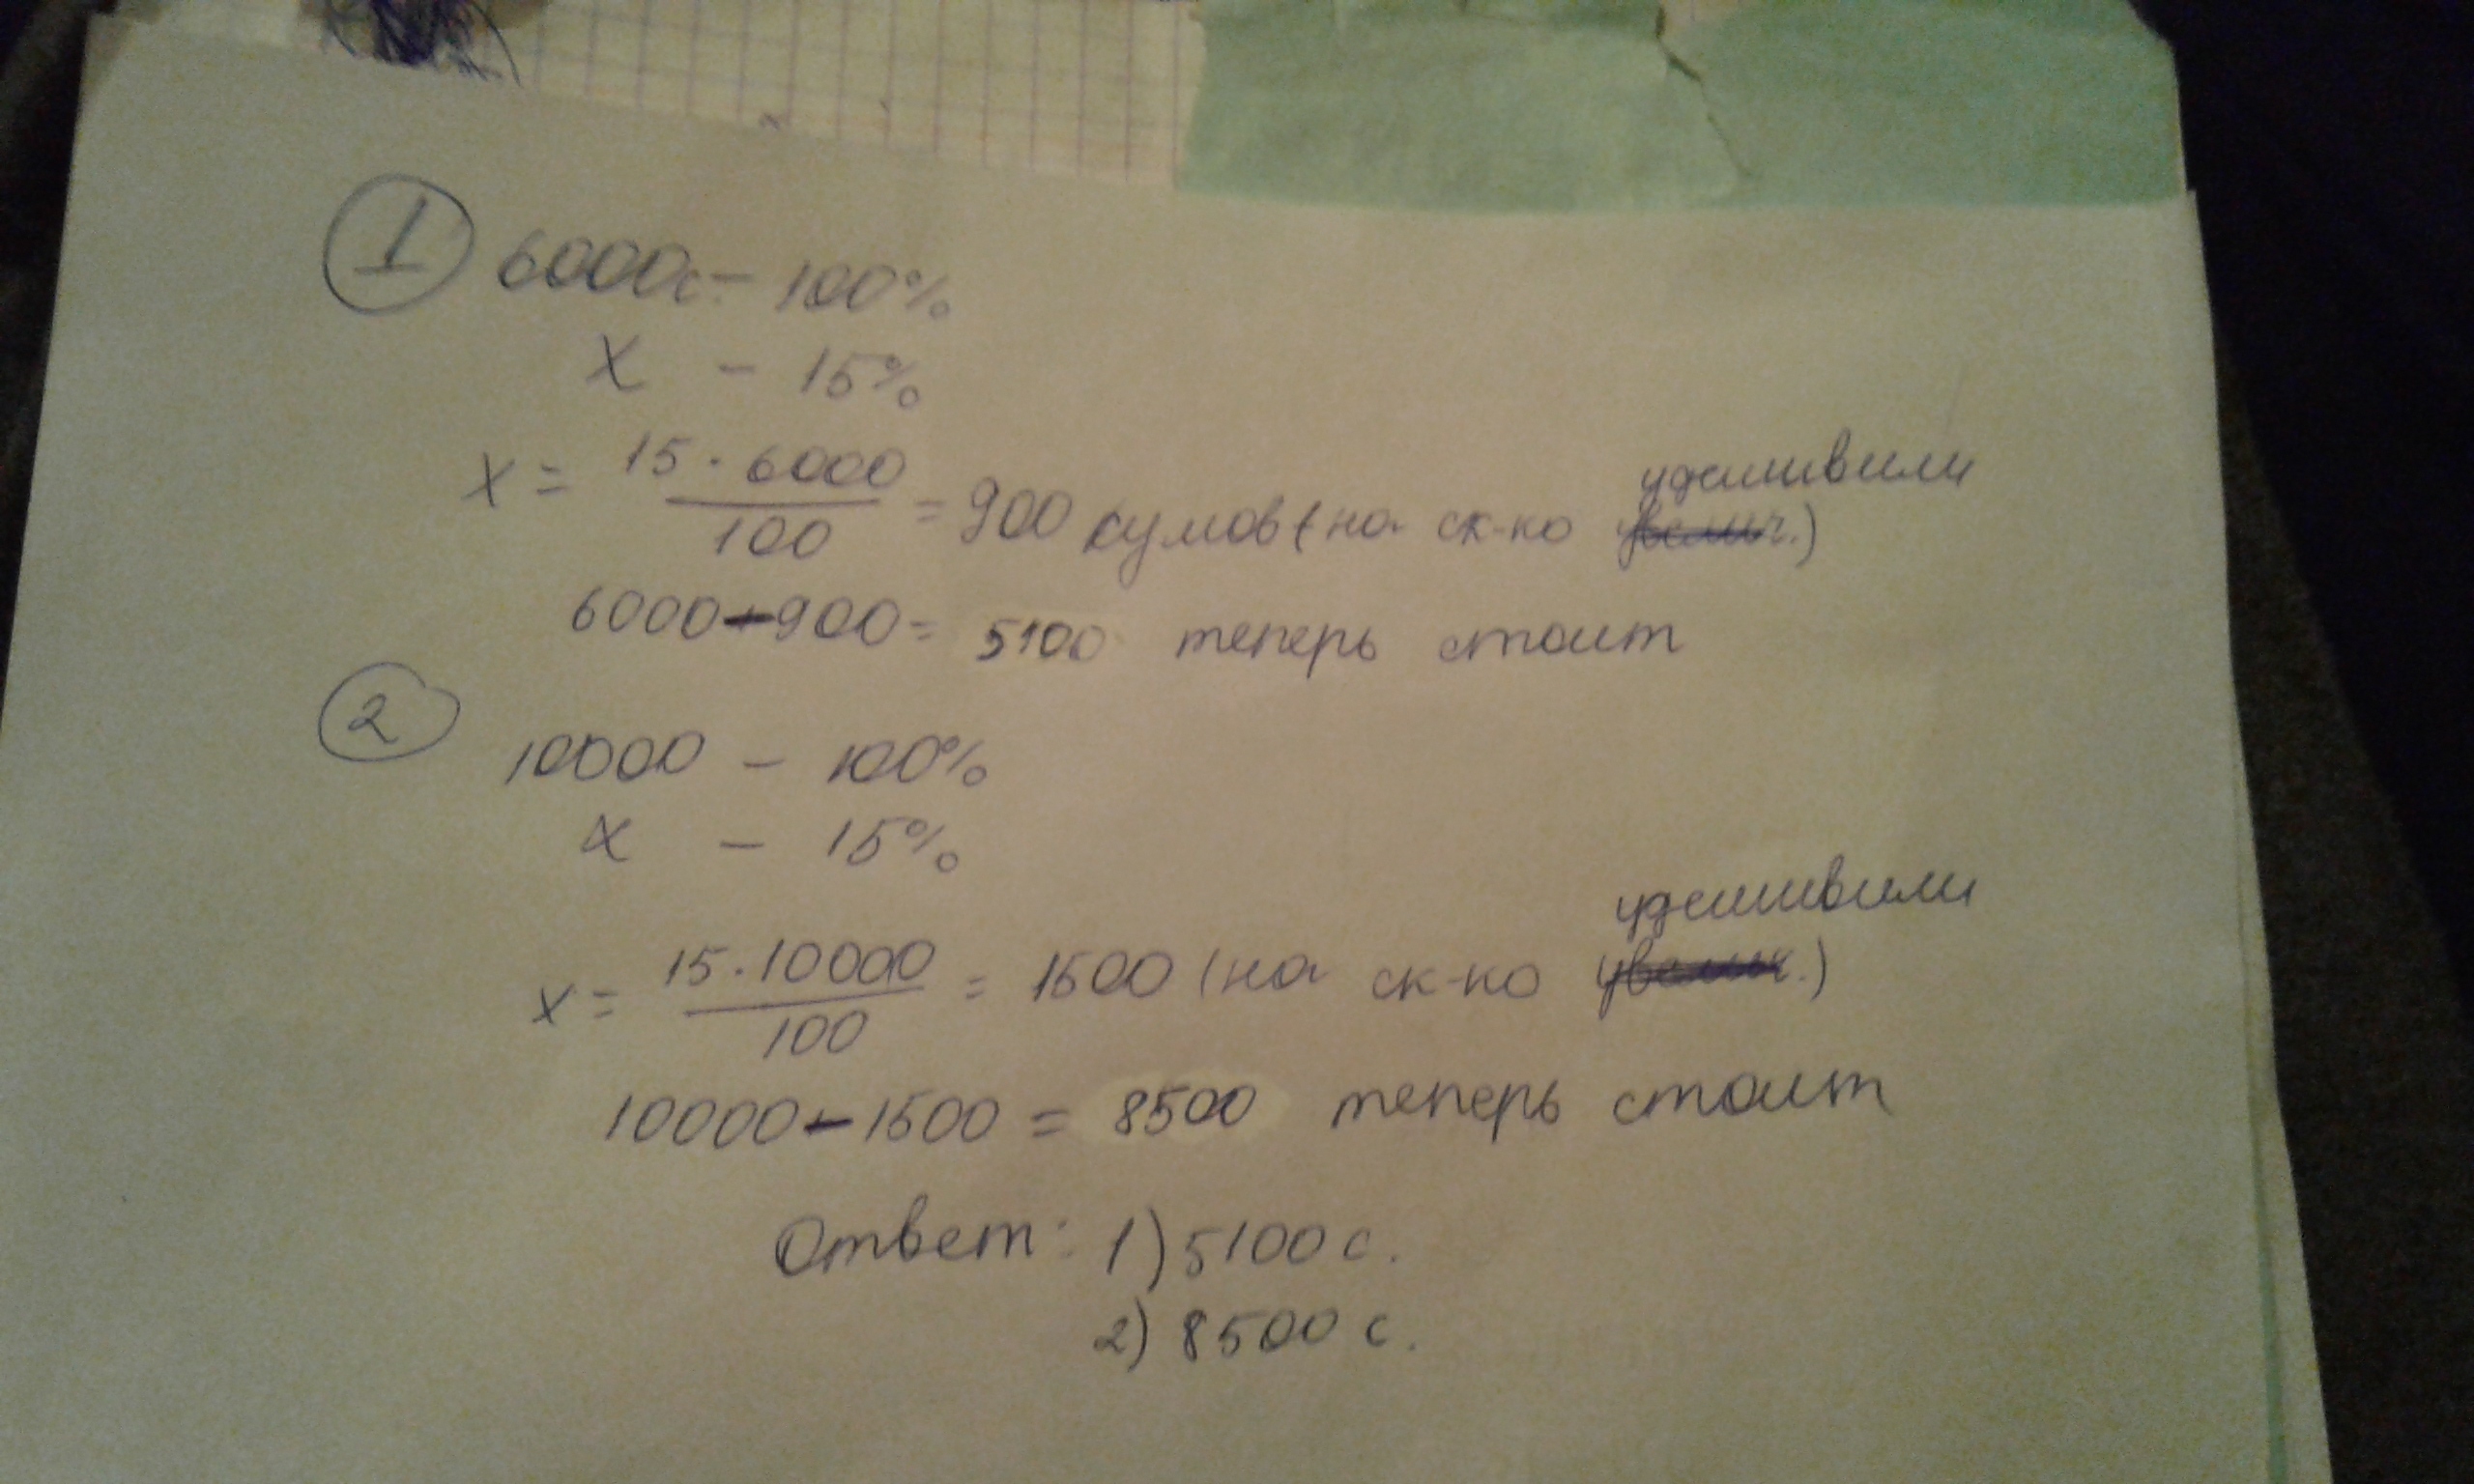 1 6000с - 100%
х - 15%
х = 15 · 6000 / 100 = 900 сумов (на ск-ко удешивили увелич.)
6000-900= 5100 теперь стоит
2
10000 - 100%
х - 15%
х = 15 · 10000 / 100 = 1500 (на ск-ко удешивили увелич.)
10000-1500 = 8500 теперь стоит
Ответ: 1) 5100 с.
2) 8500 с.